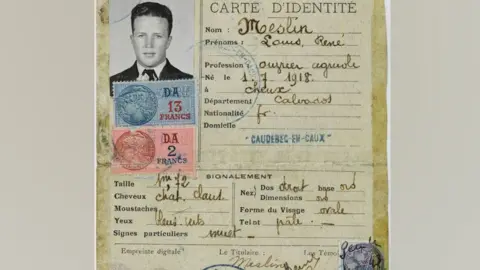 CARTE D'IDENTITÉ
Nom : Meslin
Prénoms : Louis, René
Profession : ouvrier agricole
Né le 1. 7. 1918.
à Cheux
Département Calvados
Nationalité fr.
Domicile
CAUDEBEC-EN-CAUX
DA
13
FRANCS
DA
2
FRANCS
SIGNALEMENT
Taille 1m72
Cheveux chat. claud
Moustaches
Yeux bleus verts
Signes particuliers muet
Nez Dos droit base
Dimensions
Forme du Visage ovale
Teint pâle
Empreinte digitale
Le Titulaire :
Les Témoins